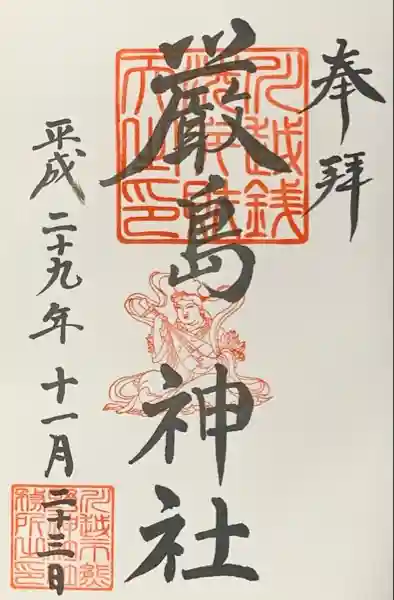 奉拝
厳島神社
平成二十九年十一月二十三日